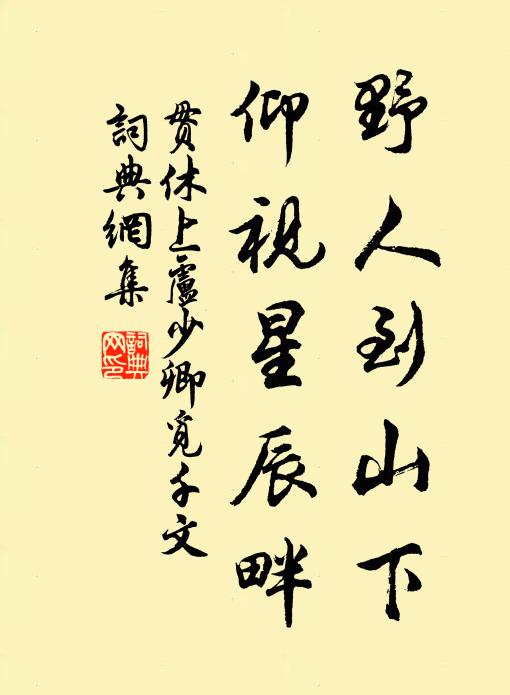 野人到山下
仰視星辰畔
貫休上盧少卿覓千文
詞典網集
詞典网印